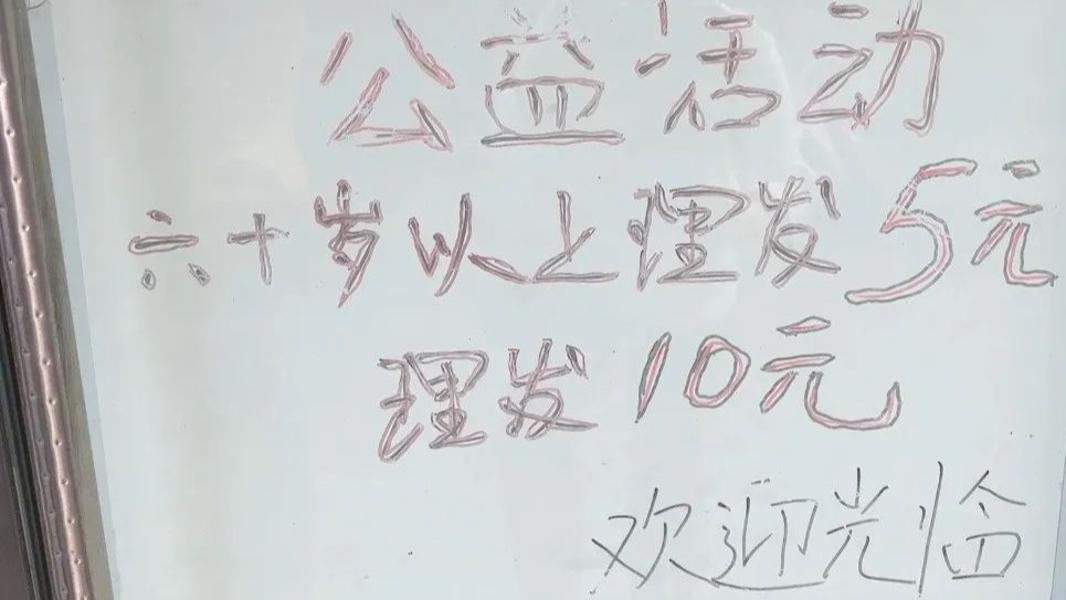 公益活动
六十岁以上理发5元
理发10元
欢迎光临